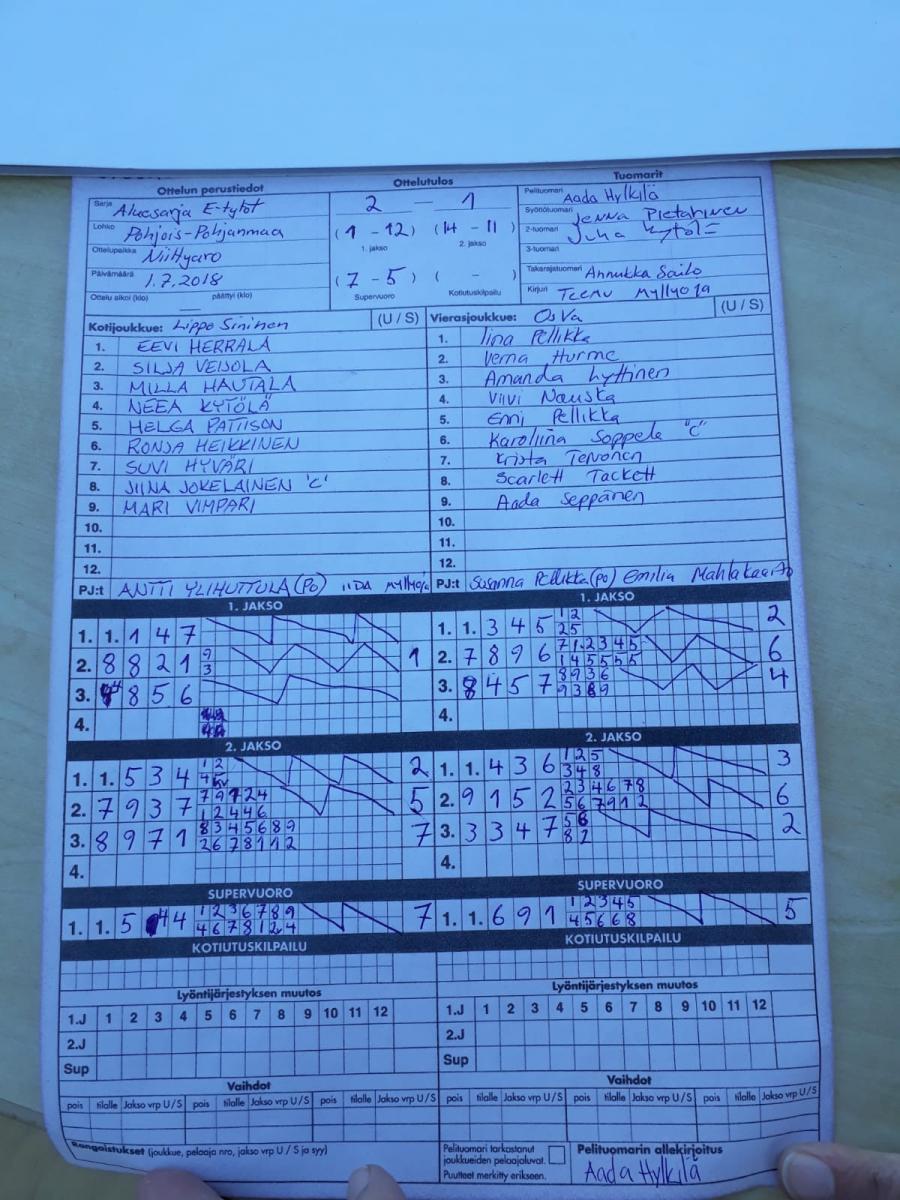 Ottelun perustiedot
Sarja Aluesarja E-tytöt
Lohko Pohjois-Pohjanmaa
Ottelupaikka Niittyaro
Päivämäärä 1.7.2018
Ottelu alkoi (klo) päättyi (klo)
Ottelutulos
2 - 1
(1 - 12) (14 - 11)
1. jakso 2. jakso
(7 - 5) ( - )
Supervuoro Kotiutuskilpailu
Tuomarit
Pelituomari Aada Hylkilä
Syöttötuomari Jenna Pietarinen
2-tuomari Juha Kytölä
3-tuomari
Takarajatuomari Annukka Sailo
Kirjuri Teemu Myllyoja
Kotijoukkue: Lippo Sininen (U / S)
1. EEVI HERRALA
2. SILJA VEIJOLA
3. MILLA HAUTALA
4. NEEA KYTÖLÄ
5. HELGA PATTISON
6. RONJA HEIKKINEN
7. SUVI HYVÄRI
8. JIINA JOKELAINEN 'C'
9. MARI VIMPARI
10.
11.
12.
PJ:t ANTTI YLIHUTTULA (PO) IIDA Myllyoja
Vierasjoukkue: OsVa (U / S)
1. Iina Pellikka
2. Verna Hurme
3. Amanda Lyttinen
4. Viivi Nauska
5. Enni Pellikka
6. Karoliina Soppela "C"
7. Krista Tervonen
8. Scarlett Tackett
9. Aada Seppänen
10.
11.
12.
PJ:t Susanna Pellikka (po) Emilia
1. JAKSO
1. 1. 1 4 7
2. 8 8 2 1 9 1
3
3. 8 5 6
4.
2. JAKSO
1. 1. 5 3 4 1 2 2
4
2. 7 9 3 7 7 9 1 2 4 5
1 2 4 4 6
3. 8 9 7 1 8 3 4 5 6 8 9 7
2 6 7 8 1 1 2
4.
SUPERVUORO
1. 1. 5 4 4 1 2 3 6 7 8 9 7
4 6 7 8 1 2 4
KOTIUTUSKILPAILU
1. JAKSO
1. 1. 3 4 5 1 2 2
2 5
2. 7 8 9 6 7 1 2 3 4 5 6
1 4 5 5 5 5
3. 8 4 5 7 8 9 3 6 4
9 3 8 9
4.
2. JAKSO
1. 1. 4 3 6 1 2 5 3
3 4 8
2. 9 1 5 2 2 3 4 6 7 8 6
5 6 7 9 1 2
3. 3 3 4 7 5 8 2
8 2
4.
SUPERVUORO
1. 1. 6 9 1 1 2 3 4 5 5
4 5 6 6 8
KOTIUTUSKILPAILU
Lyöntijärjestyksen muutos
1.J 1 2 3 4 5 6 7 8 9 10 11 12
2.J
Sup
Vaihdot
pois tilalle Jakso vrp U / S pois tilalle Jakso vrp U / S pois tilalle Jakso vrp U / S
Lyöntijärjestyksen muutos
1.J 1 2 3 4 5 6 7 8 9 10 11 12
2.J
Sup
Vaihdot
pois tilalle Jakso vrp U / S pois tilalle Jakso vrp U / S pois tilalle Jakso vrp U / S
Rangaistukset (joukkue, pelaaja nro, jakso vrp U / S ja syy)
Pelituomari tarkastanut
joukkueiden pelaajaluvat.
Puutteet merkitty erikseen.
Pelituomarin allekirjoitus
Aada Hylkilä